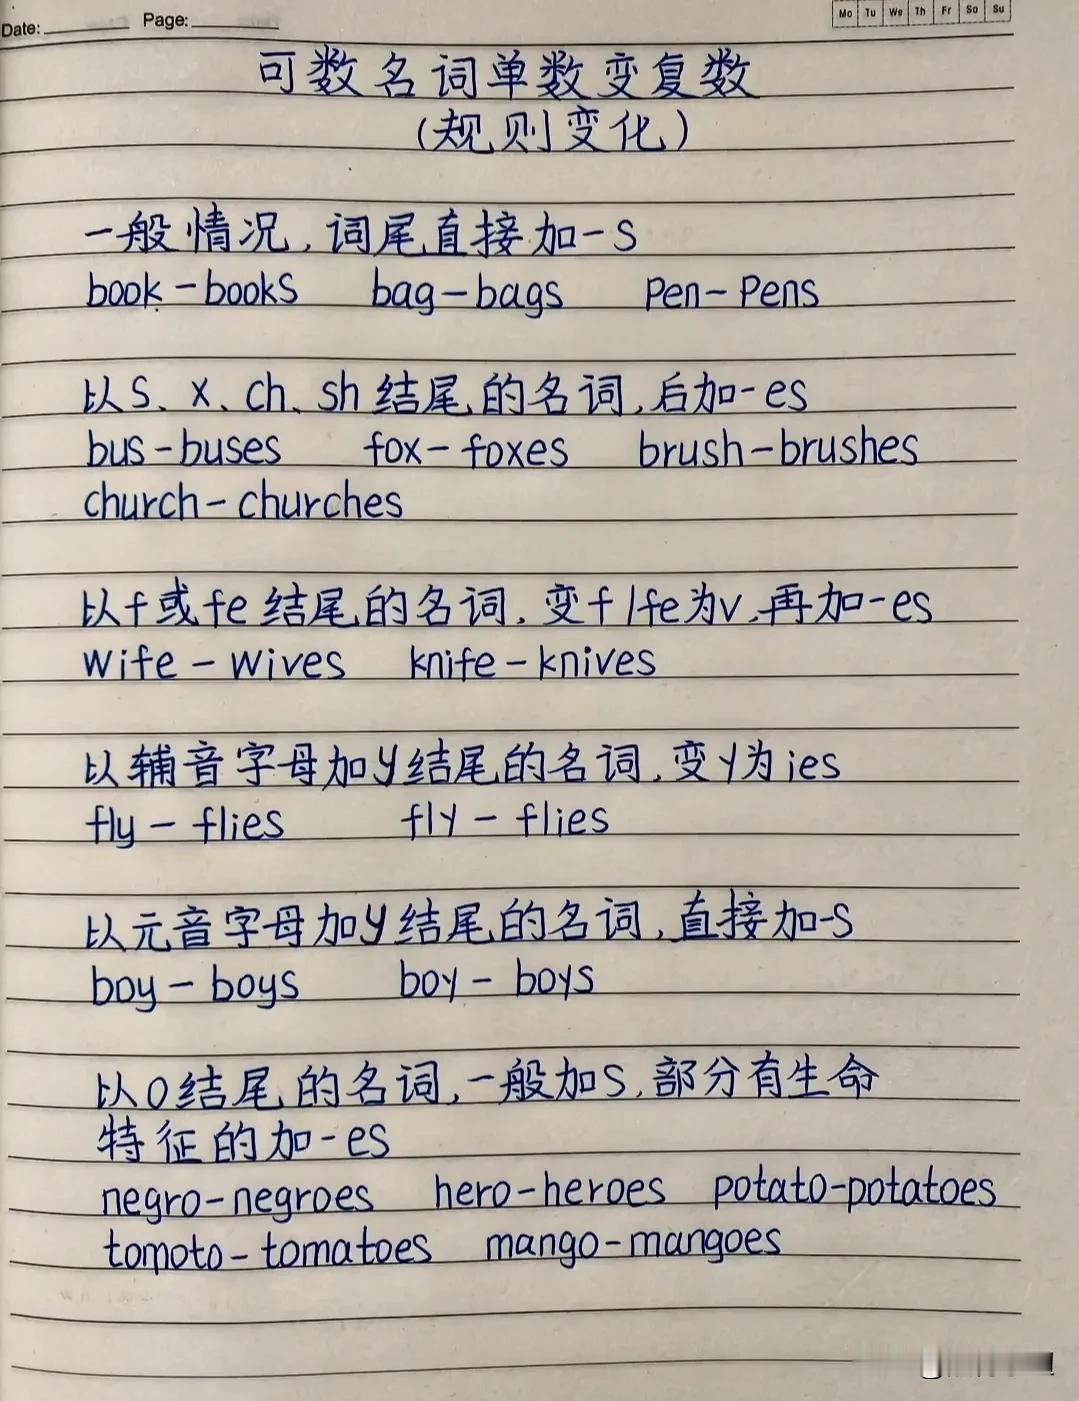 Date: Page: Mo Tu We Th Fr Sa Su
可数名词单数变复数
(规则变化)
一般情况,词尾直接加-s
book-books bag-bags pen-pens
以s、x、ch、sh结尾的名词,后加-es
bus-buses fox-foxes brush-brushes
church-churches
以f或fe结尾的名词,变f/fe为v,再加-es
wife-wives knife-knives
以辅音字母加y结尾的名词,变y为ies
fly-flies fly-flies
以元音字母加y结尾的名词,直接加-s
boy-boys boy-boys
以o结尾的名词,一般加s,部分有生命
特征的加-es
negro-negroes hero-heroes potato-potatoes
tomoto-tomatoes mango-mangoes